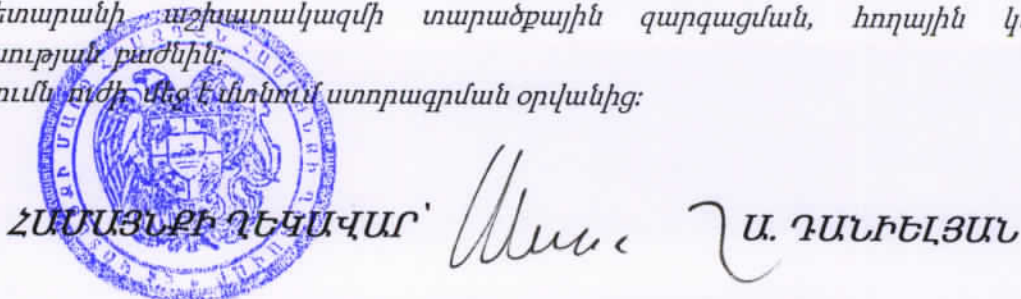 ետարանի աշխատակազմի տարածքային զարգացման, հողային կ
ության բաժնին:
ումն ուժի մեջ է մտնում ստորագրման օրվանից:
ՀԱՄԱՅՆՔԻ ՂԵԿԱՎԱՐ՝ Ա. ԴԱՆԻԵԼՅԱՆ